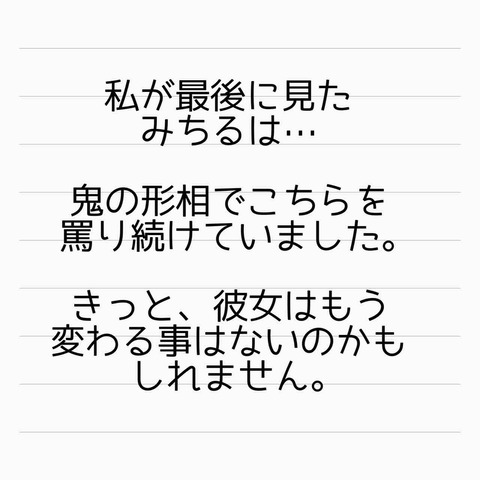 私が最後に見た
みちるは…
鬼の形相でこちらを
罵り続けていました。
きっと、彼女はもう
変わる事はないのかも
しれません。